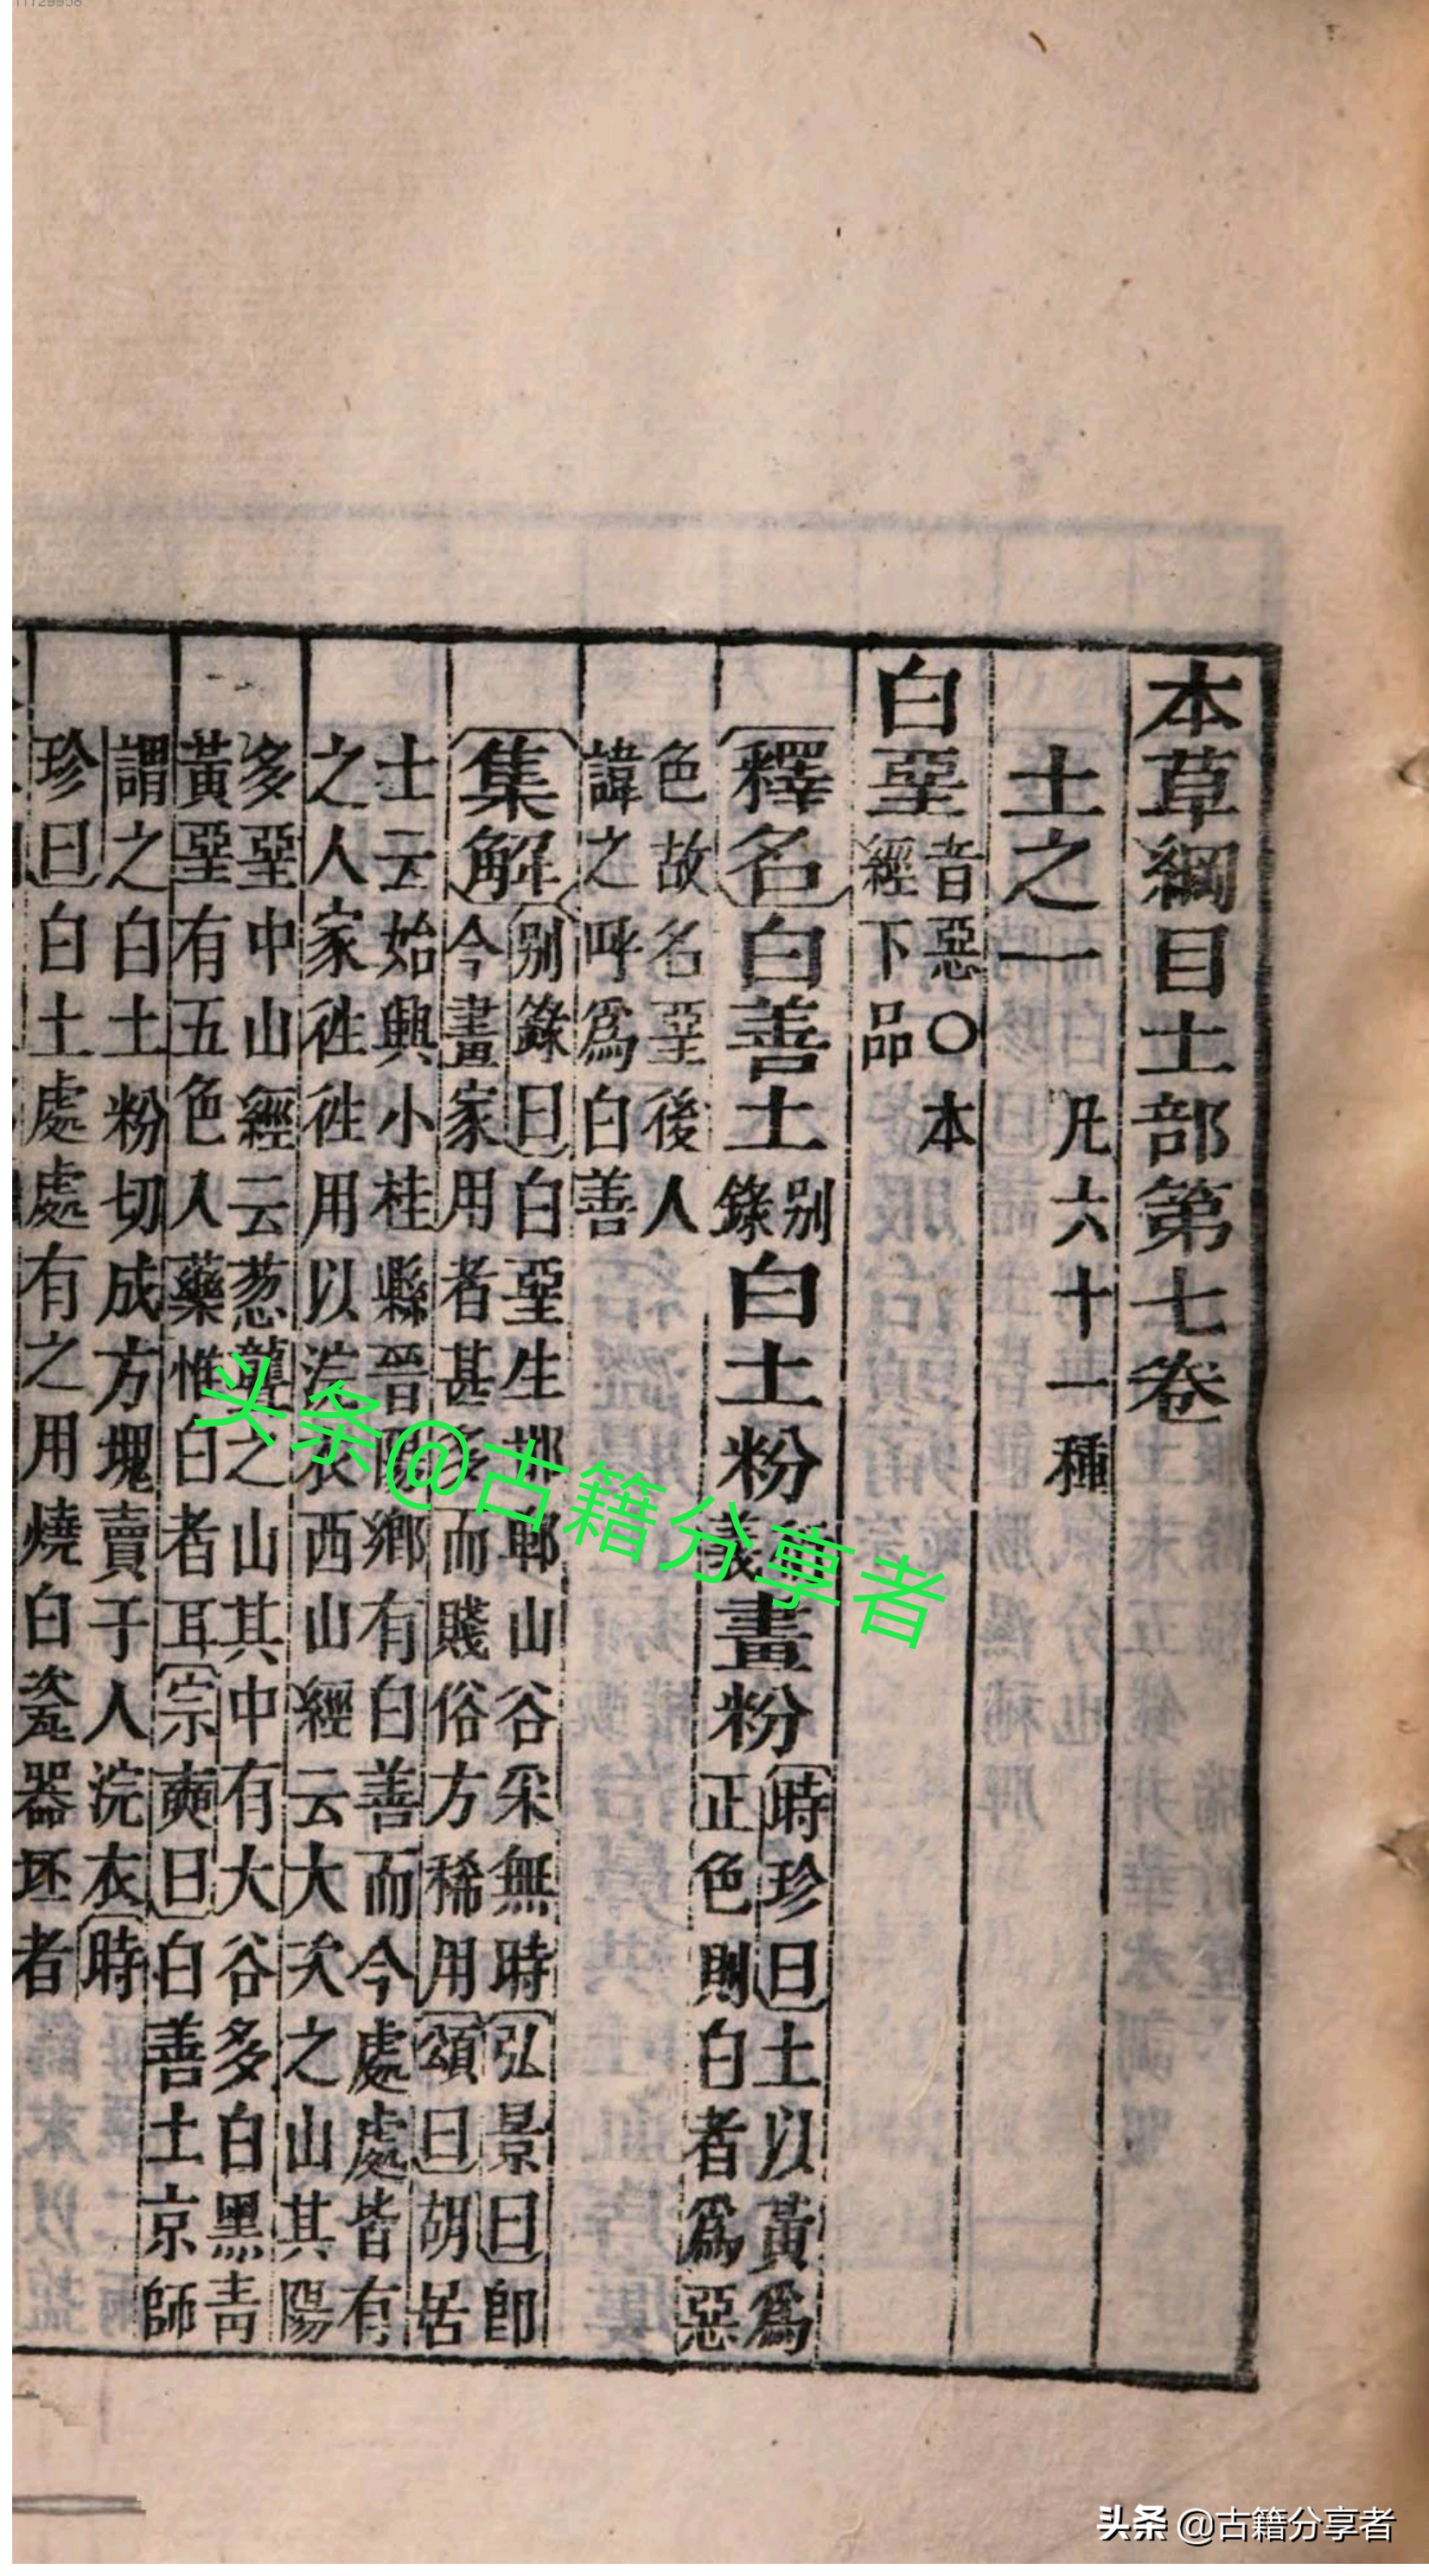 本草綱目土部第七卷
土之一 凡六十一種
白堊 音惡○本
經下品
釋名 白善土 别
錄 白土粉 義 畫粉 時珍曰土以黃爲
正色則白者爲惡
色故名堊後人
諱之呼爲白善
集解 别錄曰白堊生邯鄲山谷采無時弘景曰卽
今畫家用者甚多而賤俗方稀用頌曰胡居
士云始興小桂縣晉陽鄉有白善而今處處皆有
之人家往往用以浣衣西山經云大次之山其陽
多堊中山經云葱聾之山其中有大谷多白黑青
黃堊有五色入藥惟白者耳宗奭曰白善土京師
謂之白土粉切成方塊賣于人浣衣時
珍曰白土處處有之用燒白瓷器坯者
头条@古籍分享者
头条 @古籍分享者